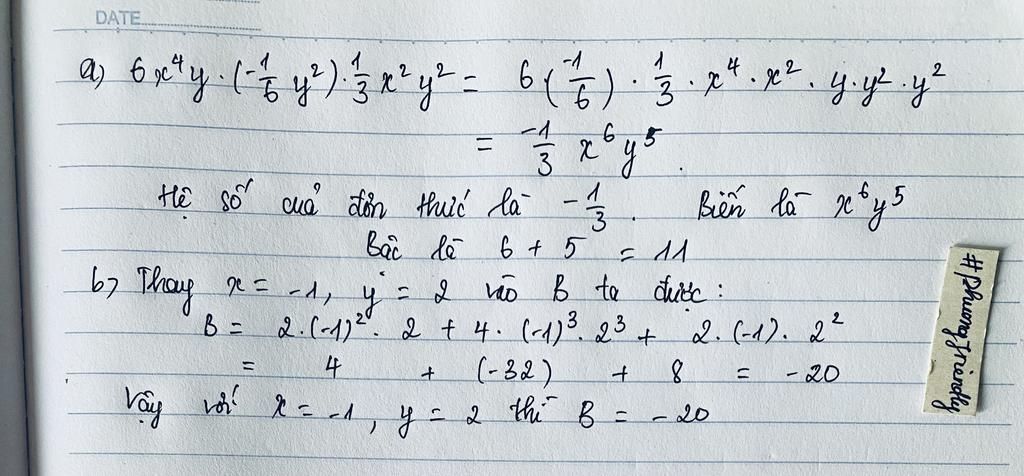 DATE
a) 6x⁴y · (-1/6 y²) · 1/3 x²y² = 6(-1/6) · 1/3 · x⁴ · x² · y·y²·y²
= -1/3 x⁶y⁵.
Hệ số cuả đơn thức là -1/3. Biến là x⁶y⁵
Bậc là 6 + 5 = 11
b) Thay x = -1, y = 2 vào B ta được:
B = 2·(-1)²· 2 + 4· (-1)³· 2³ + 2·(-1)· 2²
= 4 + (-32) + 8 = -20
Vậy với x = -1, y = 2 thì B = -20
#phuongfriendly